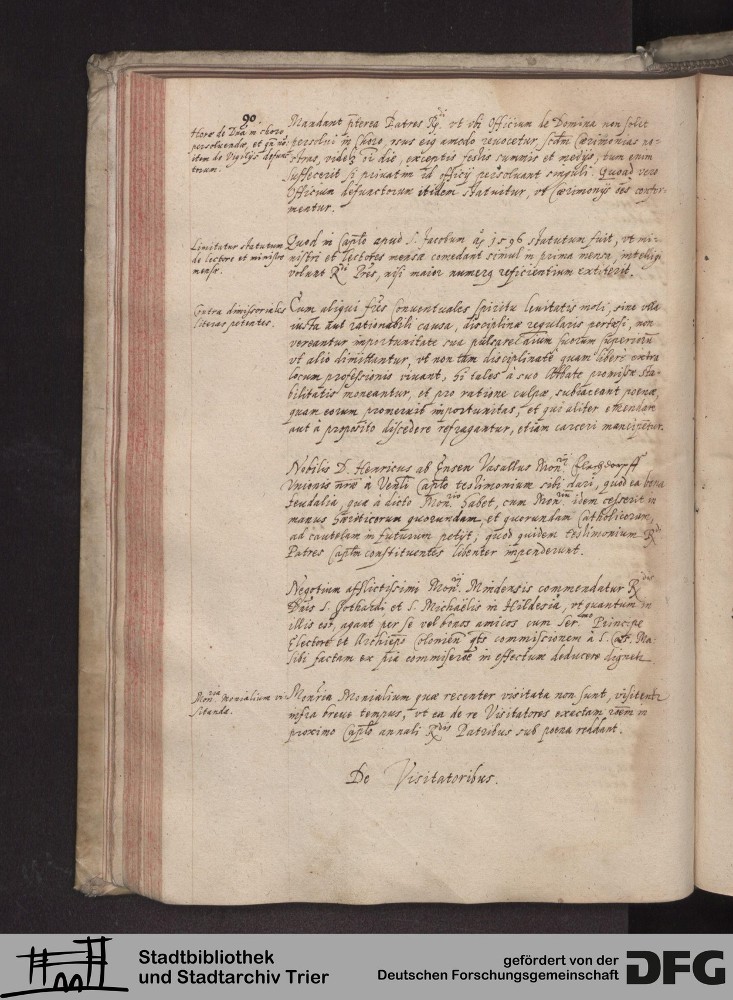 90.
Horæ de Dña in choro
persoluendæ, et qñ nõ:
item de Vigilijs defunc
torum.
Mandant p̃terea Patres Rdi. vt vbi Officium de Domina non solet
persolui in Choro, usus eius amodo reuocetur, scđm Cærimonias no-
stras, videlz in die, exceptis festis summis et medijs, tum enim
suffecerit si priuatim id officij persoluant singuli. Quoad vero
Officium defunctorum itidem statuitur, vt Cærimonijs ões confor-
mentur.
Limitatur statutum
de lectore et ministro
mensæ.
Quod in Caplõ apud S. Jacobum aõ 1596 statutum fuit, vt mi-
nistri et lectores mensæ comedant simul in prima mensa, intelligi
volunt Rdi Pres, nisi maior numerus reficientium extiterit.
Contra dimissoriales
literas petentes.
Cum aliqui fres Conuentuales spiritu leuitatis moti, sine vlla
iusta aut rationabili causa, disciplinæ regularis pertæsi, non
vereantur importunitate sua pulsare animum suorum superiorum
vt alio dimittantur, vt non tam disciplinatè quam liberè extra
locum professionis viuant, Si tales à suo Abbate promissæ sta-
bilitatis moneantur, et pro ratione culpæ, subiaceant poenæ,
quam eorum promeruit importunitas, et qui aliter emendare
aut à proposito discedere refragantur, etiam carceri mancipentur.
Nobilis D. Henricus ab Ensen Vasallus Monrij
Vnionis nræ à Venli Caplo testimonium sibi dari, quod ea bona
feudalia, quæ à dicto Monrio habet, cum Monrium idem cesserit in
manus hæreticorum quorundam et quorundam Catholicorum,
ad cautelam in futurum petijt, quod quidem testimonium Rdi
Patres Caplm constituentes libenter impenderunt.
Negotium afflictissimi Monrij Mindensis commendatur Rdis
Dñis S. Gothardi et S. Michaëlis in Hildesia, vt quantum in
illis est, agant per se vel bonos amicos cum Sermo Principe
Electore et Archiepõ Colonien qts commissionem à S. Cæs. Ma.
sibi factam ex pia commiserõe in effectum deducere dignetur.
Monria monialium vi-
sitanda.
Monria Monialium quæ recenter visitata non sunt, visitentur
infra breue tempus, vt ea de re Visitatores exactam rõem in
proximo Caplo annali Rdis Patribus sub poena reddant.
De Visitatoribus.
Stadtbibliothek
und Stadtarchiv Trier
gefördert von der
Deutschen Forschungsgemeinschaft
DFG